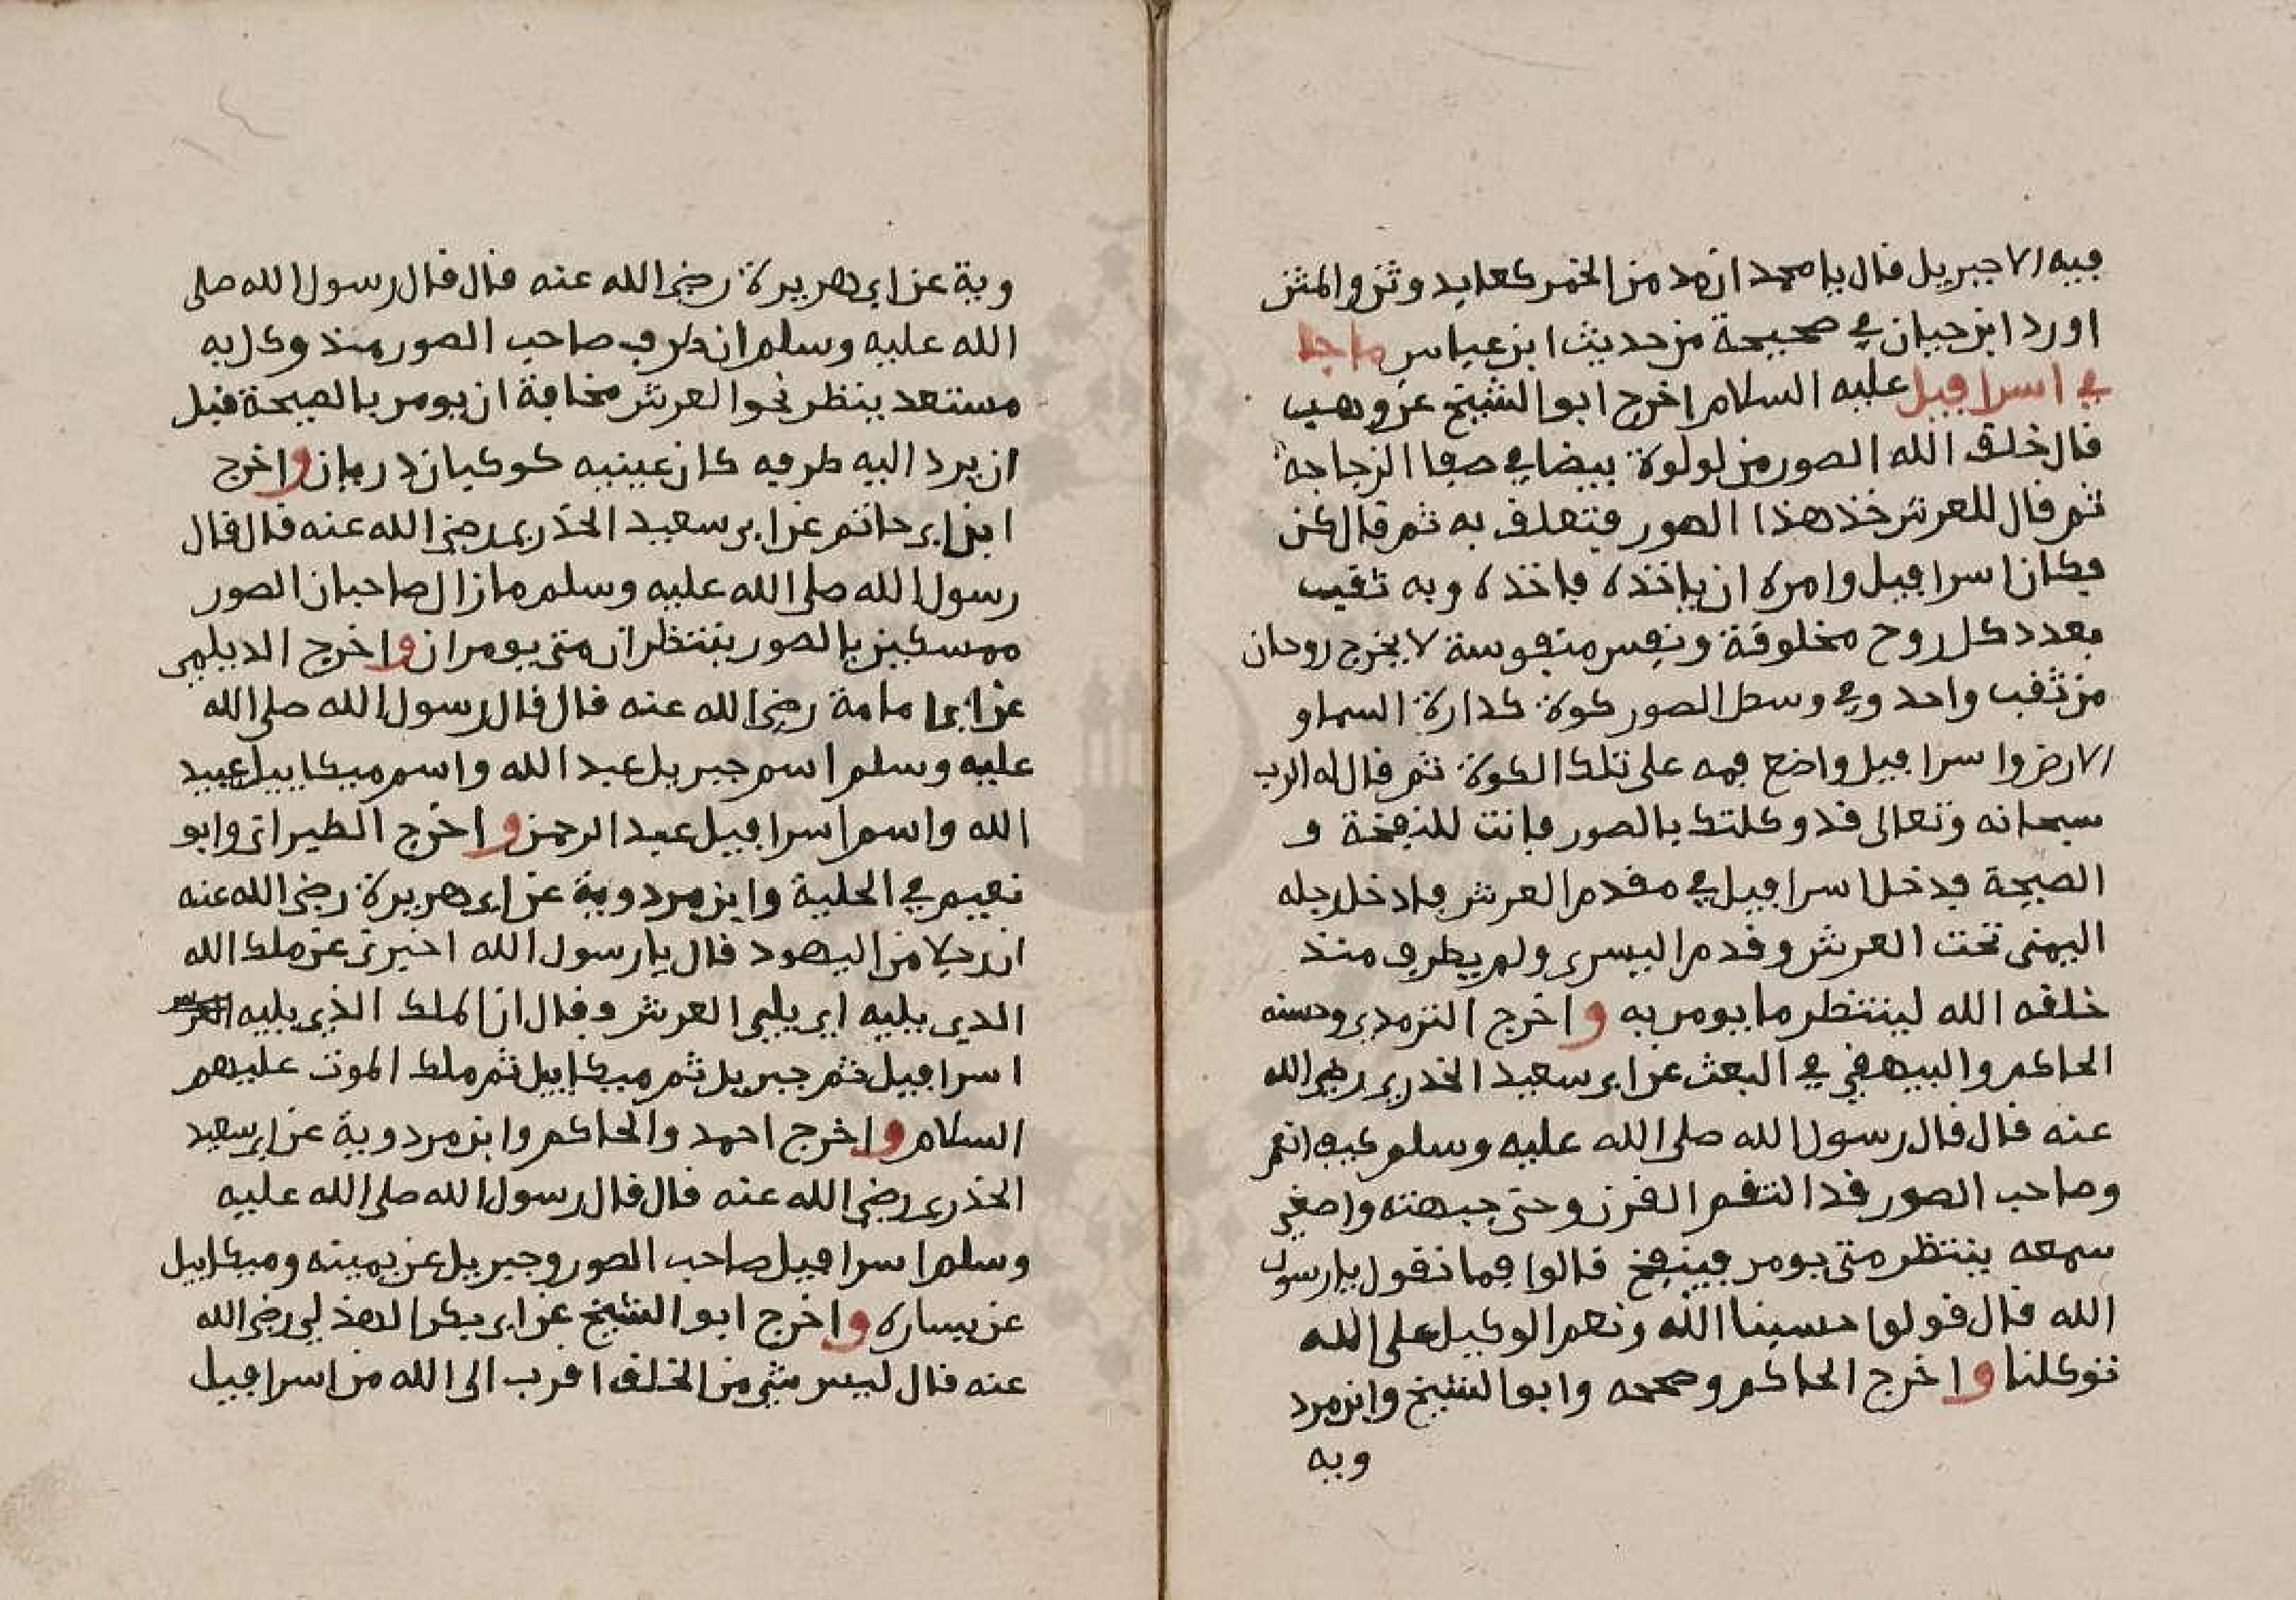 فيه الا جبريل قال يا محمد ان مدمن الخمر كعابد وثن والمتن
اورد ابن حبان في صحيحه من حديث ابن عباس ما جا
في اسرافيل عليه السلام اخرج ابو الشيخ عن وهب
قال خلق الله الصور من لولوة بيضا في صفا الزجاجة
ثم قال للعرش خذ هذا الصور فتعلق به ثم قال كن
فكان اسرافيل وامره ان ياخذه فاخذه وبه ثقب
بعدد كل روح مخلوقة ونفس منفوسة لا يخرج روحان
من ثقب واحد وفي وسط الصور كوة كدارة السما و
الارض واسرافيل واضع فمه على تلك الكوة ثم قال له الرب
سبحانه وتعالى قد وكلتك بالصور فانت للنفخة و
الصيحة فدخل اسرافيل في مقدم العرش فادخل رجله
اليمنى تحت العرش وقدم اليسرى ولم يطرف منذ
خلقه الله لينتظر ما يومر به واخرج الترمذي وحسنه
الحاكم والبيهقي في البعث عن ابي سعيد الخدري رضي الله
عنه قال قال رسول الله صلى الله عليه وسلم كيف انعم
وصاحب الصور قد التقم القرن وحنى جبهته واصغى
سمعه ينتظر متى يومر فينفخ قالوا فما نقول يا رسول
الله قال قولوا حسبنا الله ونعم الوكيل على الله
توكلنا واخرج الحاكم وصححه وابو الشيخ وابن مرد
ويه
وية عن ابي هريرة رضي الله عنه قال قال رسول الله صلى
الله عليه وسلم ان طرف صاحب الصور منذ وكل به
مستعد ينظر نحو العرش مخافة ان يومر بالصيحة قبل
ان يرد اليه طرفه كان عينيه كوكبان دريان واخرج
ابن ابي حاتم عن ابي سعيد الخذري رضي الله عنه قال قال
رسول الله صلى الله عليه وسلم ما زال صاحبان الصور
ممسكين بالصور ينتظران متى يومران واخرج الديلمي
عن ابي امامة رضي الله عنه قال قال رسول الله صلى الله
عليه وسلم اسم جبريل عبد الله واسم ميكاييل عبيد
الله واسم اسرافيل عبد الرحمن واخرج الطبراني وابو
نعيم في الحلية وابن مردوية عن ابي هريرة رضي الله عنه
ان رجلا من اليهود قال يا رسول الله اخبرني عن ملك الله
الذي يليه اي يلي العرش وقال ان الملك الذي يليه
اسرافيل ثم جبريل ثم ميكاييل ثم ملك الموت عليهم
السلام واخرج احمد والحاكم وابن مردوية عن ابي سعيد
الخذري رضي الله عنه قال قال رسول الله صلى الله عليه
وسلم اسرافيل صاحب الصور وجبريل عن يمينه وميكاييل
عن يساره واخرج ابو الشيخ عن ابي بكر الهذلي رضي الله
عنه قال ليس شي من الخلق اقرب الى الله من اسرافيل